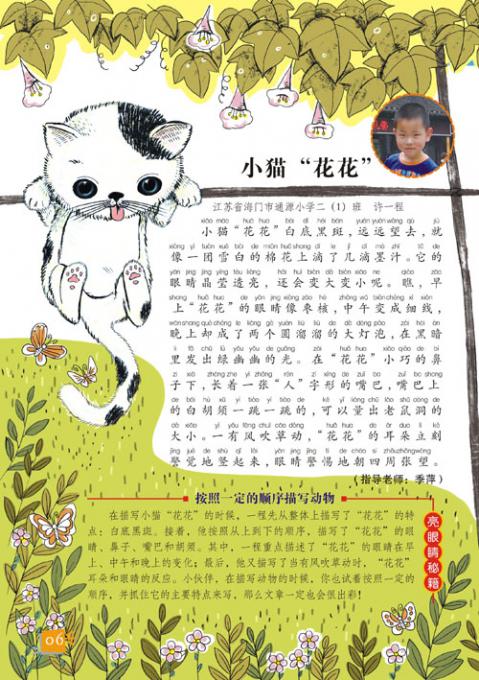 小猫“花花”
江苏省海门市通源小学二（1）班 许一程
小猫“花花”白底黑斑，远远望去，就
像一团雪白的棉花上滴了几滴墨汁。它的
眼睛晶莹透亮，还会变大变小呢。瞧，早
上“花花”的眼睛像枣核，中午变成细线，
晚上却成了两个圆溜溜的大灯泡，在黑暗
里发出绿幽幽的光。在“花花”小巧的鼻
子下，长着一张“人”字形的嘴巴，嘴巴上
的白胡须一跳一跳的，可以量出老鼠洞的
大小。一有风吹草动，“花花”的耳朵立刻
警觉地竖起来，眼睛警惕地朝四周张望。
（指导老师：季萍）
按照一定的顺序描写动物
在描写小猫“花花”的时候，一程先从整体上描写了“花花”的特
点：白底黑斑。接着，他按照从上到下的顺序，描写了“花花”的眼
睛、鼻子、嘴巴和胡须。其中，一程重点描述了“花花”的眼睛在早
上、中午和晚上的变化；最后，他又描写了当有风吹草动时，“花花”
耳朵和眼睛的反应。小伙伴，在描写动物的时候，你也试着按照一定的
顺序，并抓住它的主要特点来写，那么文章一定也会很出彩！
亮眼睛秘籍
06